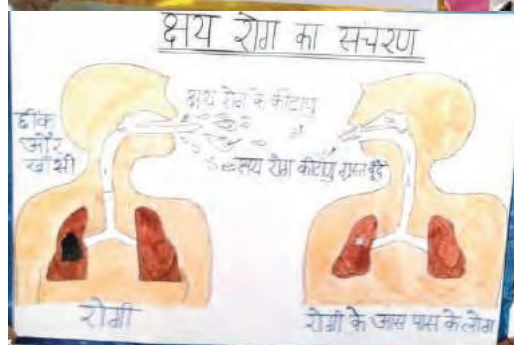 क्षय रोग का संचरण
छींक
और
खाँसी
क्षय रोग के कीटाणु
क्षय रोग कीटाणु ग्रस्त बूंदे
रोगी
रोगी के आस पास के लोग